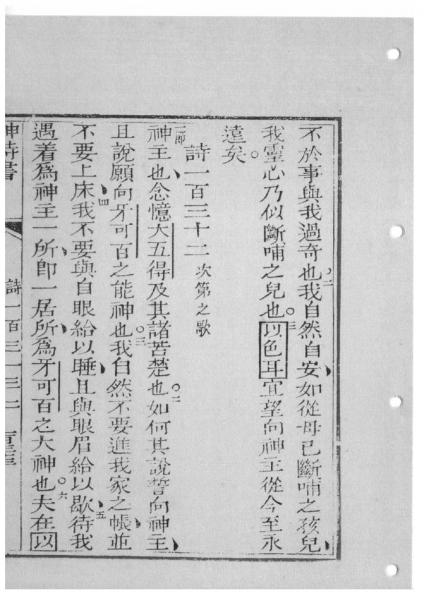 不於事與我過奇也二我自然自安如從母已斷哺之孩兒
我靈心乃似斷哺之兒也三以色耳宜望向神主從今至永
遠矣
詩一百三十二 次第之歌
一節神主也念憶大五得及其諸苦楚也二如何其說誓向神主
且說願向牙可百之能神也三我自然不要進我家之帳並
不要上床四我不要與自眼給以睡且與眼眉給以歇五待我
遇着為神主一所卽一居所為牙可百之大神也六夫在以
神詩書 詩一百三一三二